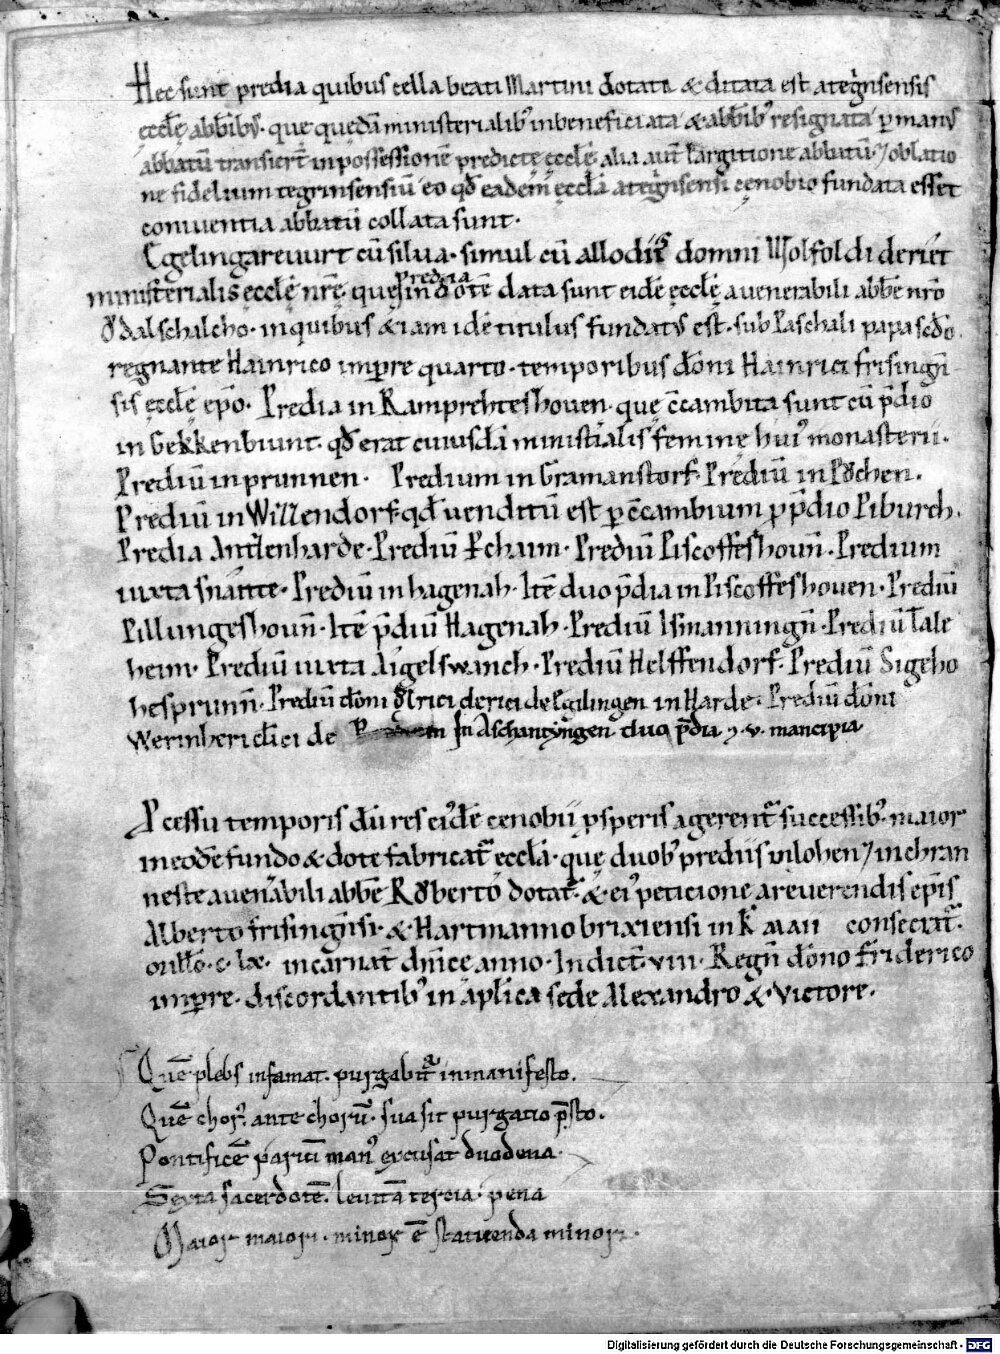 Hec sunt predia quibus cella beati Martini dotata & ditata est a teg̃nsensis
ęcclę abb̄ib9. quę quędā ministerialib9 in beneficiata & abb̄ib9 resignata p man9
abbatū transiert̄ in possessionē predictę ęcclę. alia aut̄ largitione abbatū ⁊ oblatio
ne fidelium tegrinsensiū eo qđ eadem ęccla a teg̃nsensi cenobio fundata esset
conniventia abbatū collata sunt.
Egelingarevurt cū silua. simul cū allodiis domni Wolfoldi
ministerialis ęcclę nrę. quę predia in dotē data sunt eidē ęcclę a venerabili abb̄e nr̄o
Ǒdalschalcho. in quibus & iam idē titulus fundat9 est. sub Paschali papa scđo.
regnante Hainrico imp̄re quarto. temporibus dōni Hainrici frisingn̄
sis ęcclę ep̄o. Predia in Ramprehteshouen. quę c̄cambita sunt cū p̄dio
in Gekkenbiunt. qđ erat cuiusdā minist̄ialis feminę hui9 monasterii.
Prediū in prunnen. Predium in Gramanstorf. Prediū in Pǒchen.
Prediū in Willendorf. qđ venditū est p c̄cambium p p̄dio Piburch.
Predia Antlenharde. Prediū Piscoffeshoun̄. Predium
iuxta snaitte. Prediū in hagenah. Itē duo p̄dia in Piscoffeshouen. Prediū
Pillungeshoun̄. Itē p̄diū Hagenah. Prediū Ismanningn̄. Prediū Tale
heim. Prediū iuxta Aigelswanch. Prediū Helffendorf. Prediū Sigeho
hesprunn̄. Prediū dōni Ǒlrici clerici de Egilingen in Harde. Prediū dōni
Werinheri cl̄ici de In Aschantyngen duo p̄dia ⁊ .v. mancipia
Pcessu temporis dū res ei9dē cenobii psperis agerent᷑ successib9. maior
in eodē fundo & dote fabricat᷑ ęccla. quę duob9 prediis vilohen ⁊ in chran
neste a ven̄abili abb̄e Rǒberto dotat᷑. & ei9 peticione a reverendis ep̄is
Alberto frisingn̄si. & Hartmanno brixiensi in kł maii consecrat᷑.
mill̄o. c. lx. incarnat̄ dn̄ice anno. Indict̄. viii. Regn̄ dōno friderico
imp̄re. discordantib9 in aplica sede Alexandro & Victore.
Quē plebs infamat. purgabit᷑ in manifesto.
Quē chor9. ante chorū. sua sit purgatio p̄sto.
Pontificē pariū man9 excusat duodena.
Sexta sacerdotē. levitā tercia. pena
Maior maiori. minor ē statuenda minori.